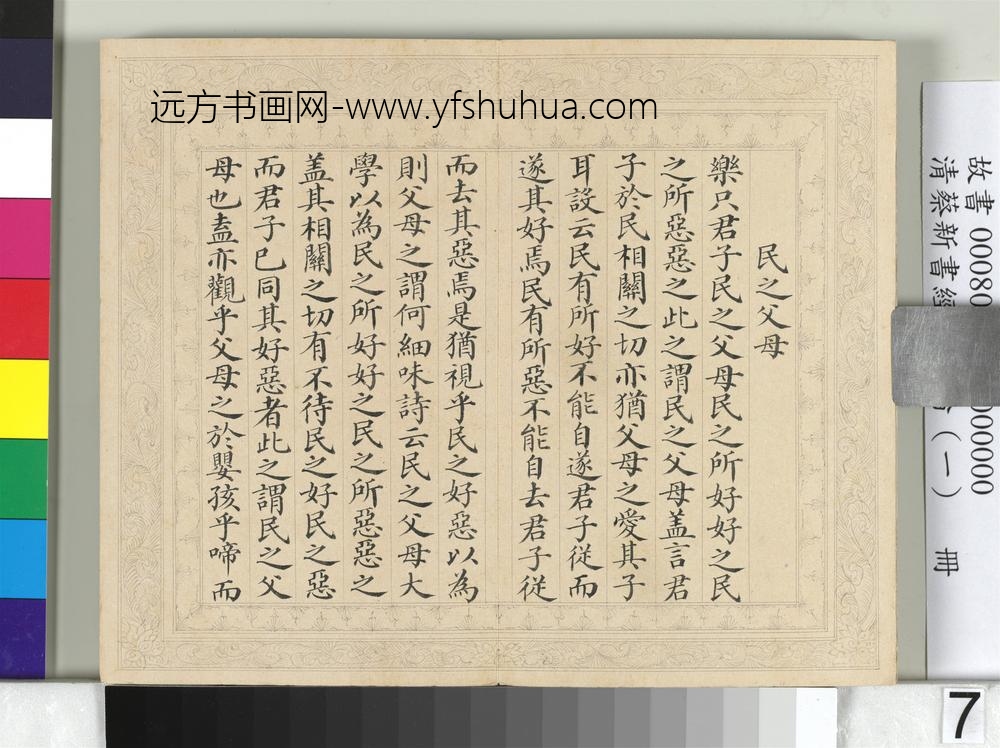 远方书画网-www.yfshuhua.com
民之父母
樂只君子民之父母民之所好好之民
之所惡惡之此之謂民之父母蓋言君
子於民相關之切亦猶父母之愛其子
耳設云民有所好不能自遂君子從而
遂其好焉民有所惡不能自去君子從
而去其惡焉是猶視乎民之好惡以為
則父母之謂何細味詩云民之父母大
學以為民之所好好之民之所惡惡之
盖其相關之切有不待民之好民之惡
而君子已同其好惡者此之謂民之父
母也盍亦觀乎父母之於嬰孩乎啼而
故書 00080
00000
清蔡新書經
（一） 冊
7